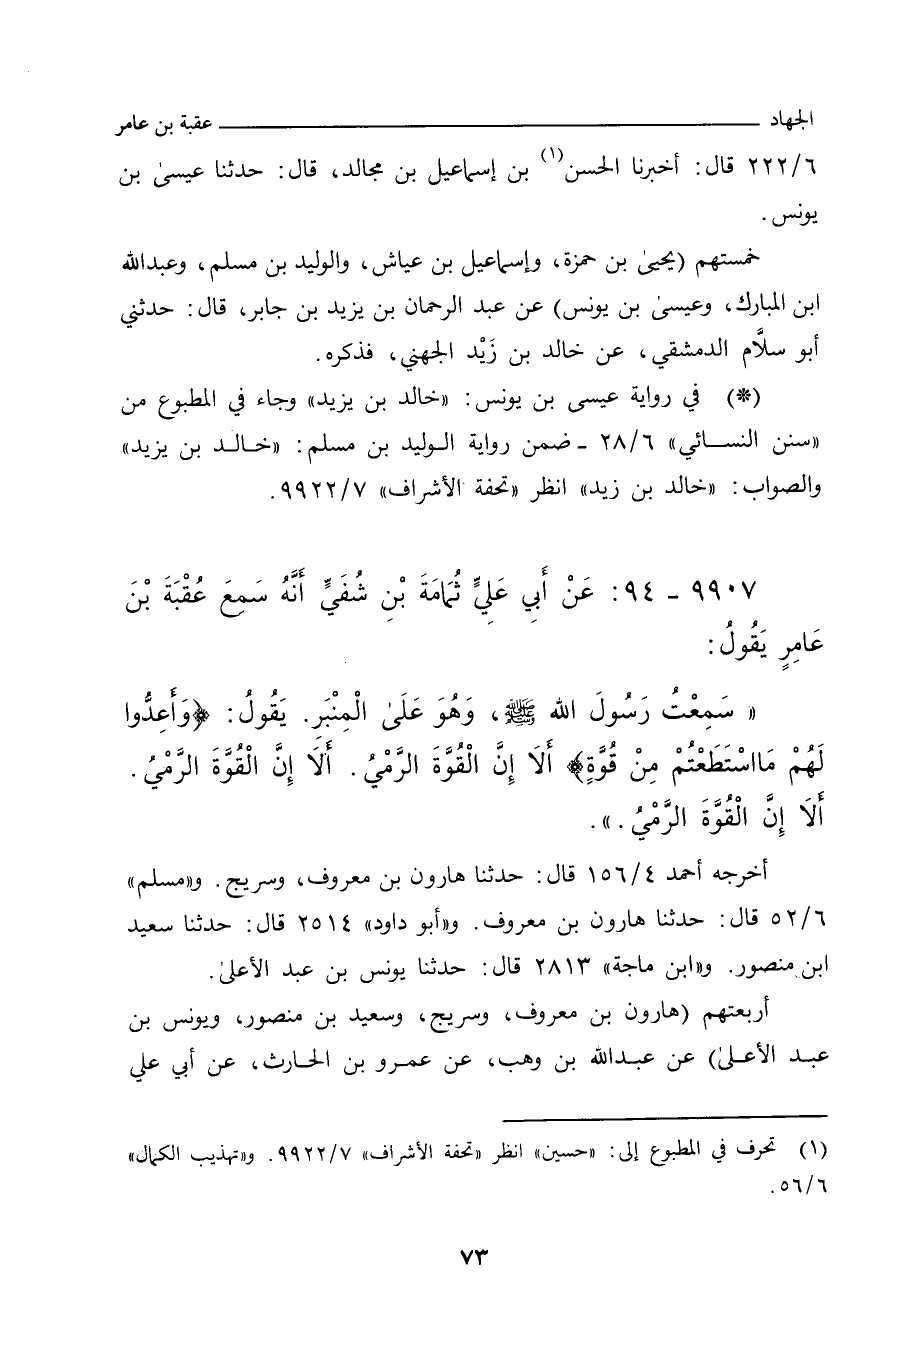 الجهاد ــــــــــ عقبة بن عامر
٢٢٢/٦ قال: أخبرنا الحسن(١) بن إسماعيل بن مجالد، قال: حدثنا عيسىٰ بن
يونس.
خمستهم (يحيىٰ بن حمزة، وإسماعيل بن عياش، والوليد بن مسلم، وعبدالله
ابن المبارك، وعيسىٰ بن يونس) عن عبد الرحمان بن يزيد بن جابر، قال: حدثني
أبو سلَّام الدمشقي، عن خالد بن زَيْد الجهني، فذكره.
(*) في رواية عيسى بن يونس: «خالد بن يزيد» وجاء في المطبوع من
«سنن النسائي» ٢٨/٦ ـ ضمن رواية الوليد بن مسلم: «خالد بن يزيد»
والصواب: «خالد بن زيد» انظر «تحفة الأشراف» ٩٩٢٢/٧.
٩٩٠٧ ـ ٩٤: عَنْ أَبِي عَلِيٍّ ثُمَامَةَ بْنِ شُفَيٍّ أَنَّهُ سَمِعَ عُقْبَةَ بْنَ
عَامِرٍ يَقُولُ:
« سَمِعْتُ رَسُولَ الله ﷺ، وَهُوَ عَلَىٰ الْمِنْبَرِ. يَقُولُ: ﴿وَأَعِدُّوا
لَهُمْ مَااسْتَطَعْتُمْ مِنْ قُوَّةٍ﴾ أَلَا إِنَّ الْقُوَّةَ الرَّمْيُ. أَلَا إِنَّ الْقُوَّةَ الرَّمْيُ.
أَلَا إِنَّ الْقُوَّةَ الرَّمْيُ.».
أخرجه أحمد ١٥٦/٤ قال: حدثنا هارون بن معروف، وسريج. و«مسلم»
٥٢/٦ قال: حدثنا هارون بن معروف. و«أبو داود» ٢٥١٤ قال: حدثنا سعيد
ابن منصور. و«ابن ماجة» ٢٨١٣ قال: حدثنا يونس بن عبد الأعلىٰ.
أربعتهم (هارون بن معروف، وسريج، وسعيد بن منصور، ويونس بن
عبد الأعلىٰ) عن عبدالله بن وهب، عن عمرو بن الحارث، عن أبي علي
(١) تحرف في المطبوع إلى: «حسين» انظر «تحفة الأشراف» ٩٩٢٢/٧. و«تهذيب الكمال»
٥٦/٦.
٧٣